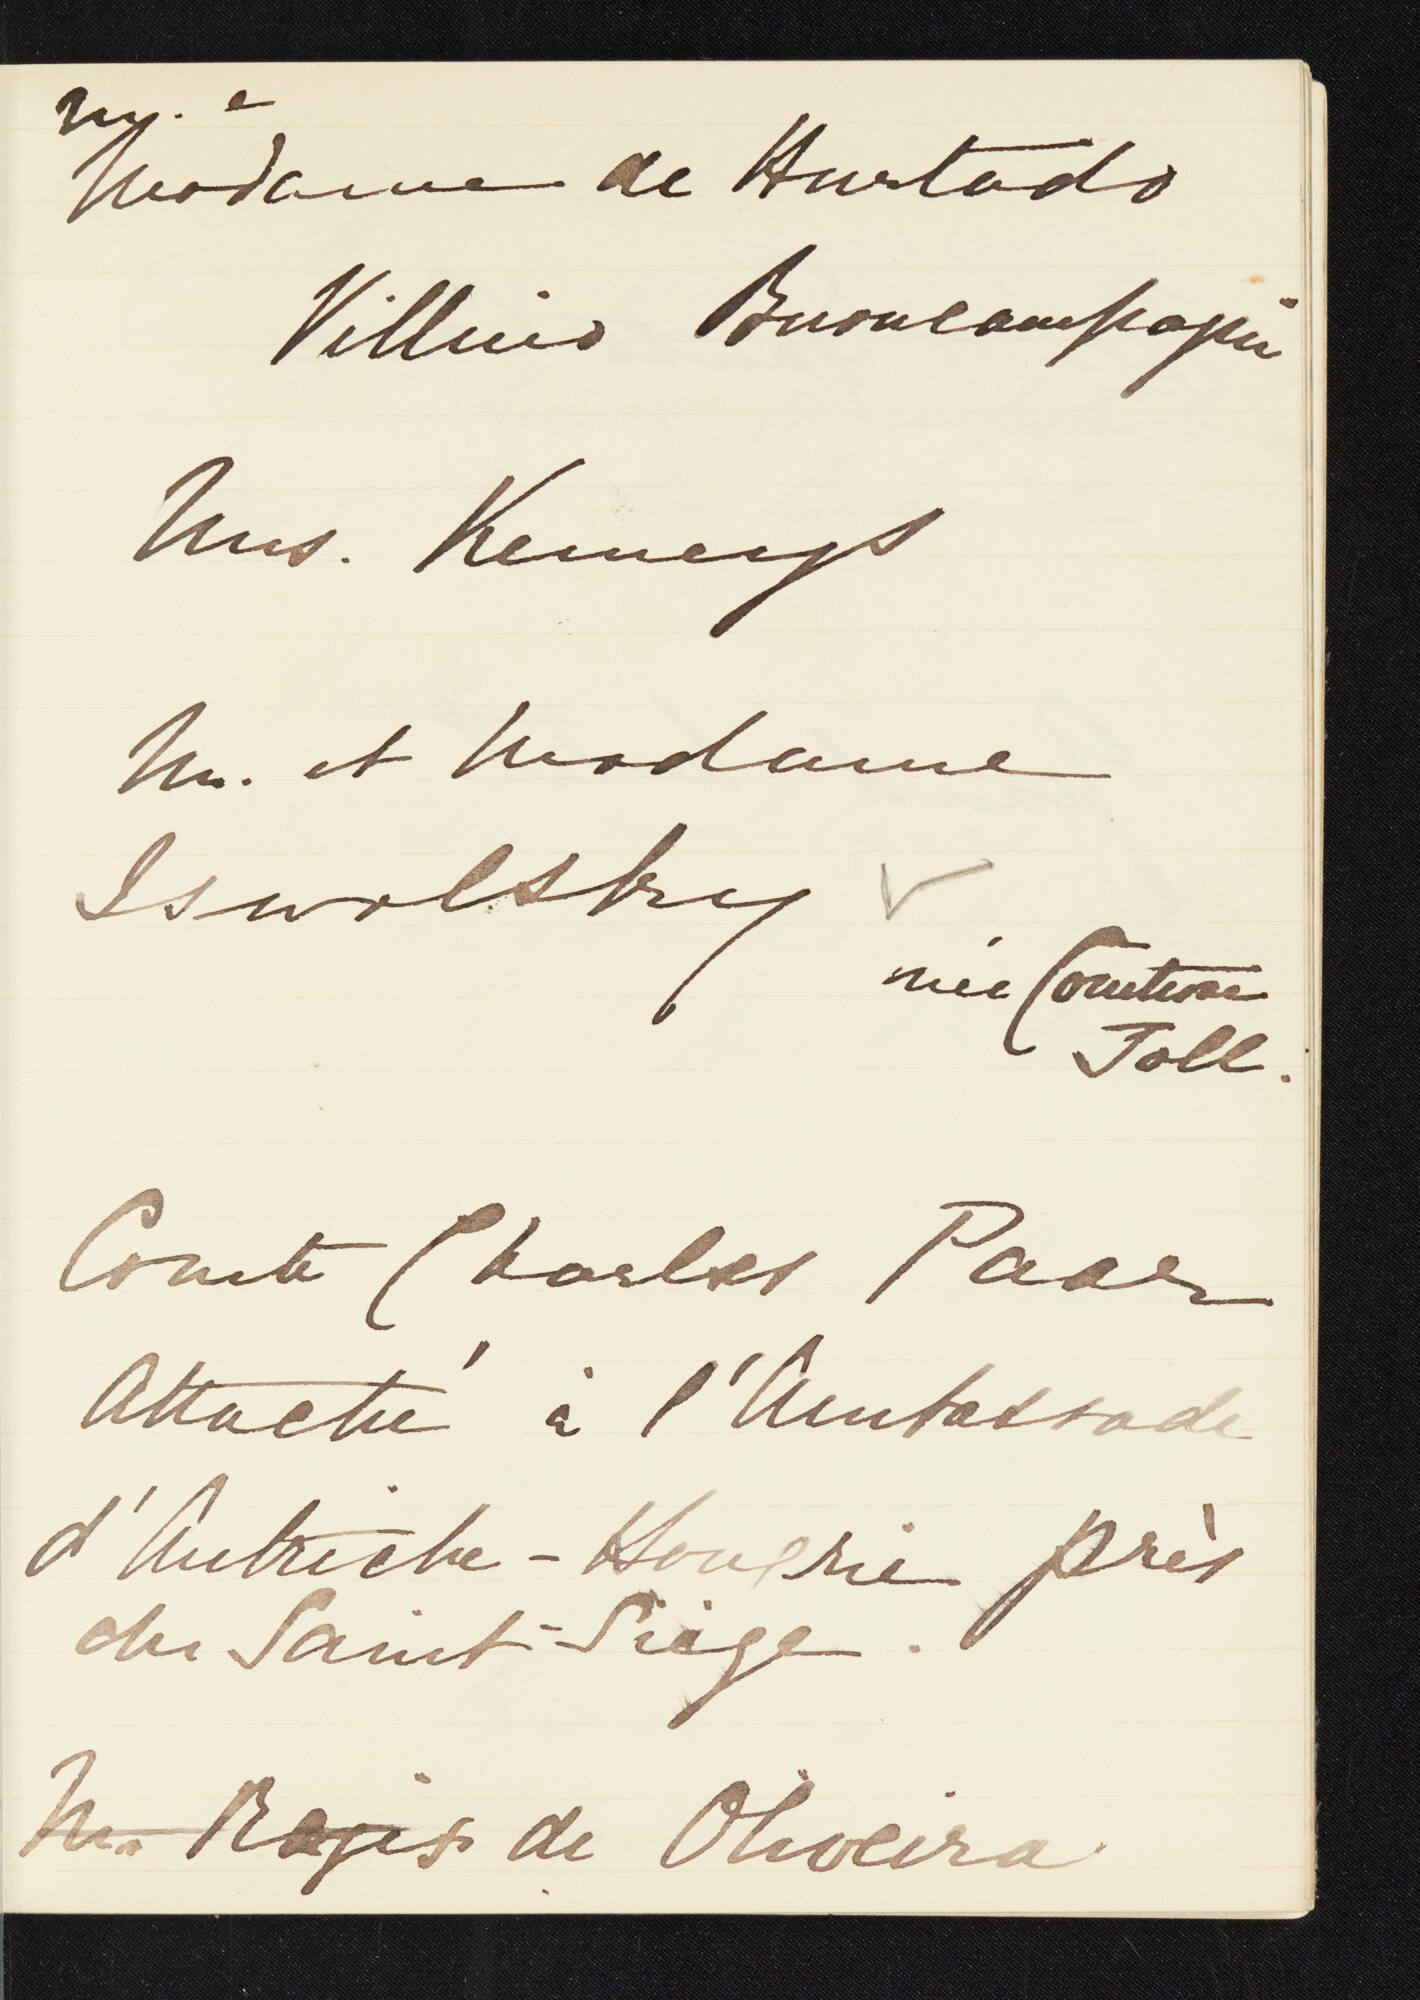 M. e
Madame de Hurtado
Villino Buoncampagni
Mrs. Kemeys
M. et Madame
Iswolsky
née Comtesse
Toll.
Comte Charles Paar
Attaché à l'Ambassade
d'Autriche-Hongrie près
du Saint-Siège.
M. Regis de Oliveira